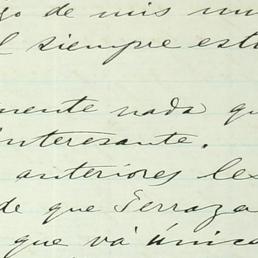 go de mis mu
l siempre est
mente nada qu
interesante.
anteriores les
de que Terraza
que vá única